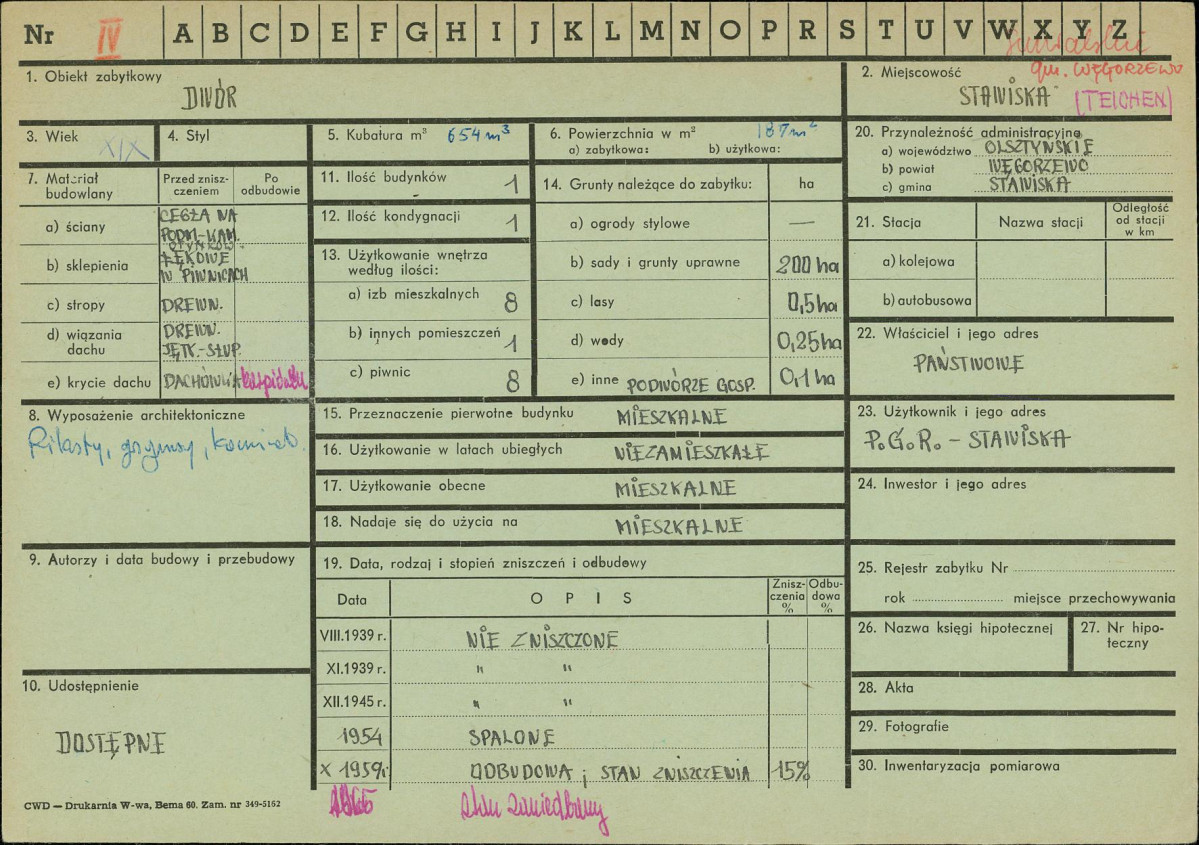 Nr IV A B C D E F G H I J K L M N O P R S T U V W X Y Z
suwalskie
gm. WĘGORZEWO
1. Obiekt zabytkowy
DWÓR
2. Miejscowość
STAWISKA (TEICHEN)
3. Wiek XIX
4. Styl
5. Kubatura m³ 654 m³
6. Powierzchnia w m² 187 m²
a) zabytkowa: b) użytkowa:
20. Przynależność administracyjna
a) województwo OLSZTYŃSKIE
b) powiat WĘGORZEWO
c) gmina STAWISKA
7. Materiał budowlany
Przed znisz-
czeniem
Po
odbudowie
a) ściany CEGŁA NA
PODM-KAM.
OTYNKOW.
b) sklepienia ŁĘKOWE
W PIWNICACH
c) stropy DREWN.
d) wiązania dachu DREWN.
JĘTK.-SŁUP.
e) krycie dachu DACHÓWKA
11. Ilość budynków 1
12. Ilość kondygnacji 1
13. Użytkowanie wnętrza
według ilości:
a) izb mieszkalnych 8
b) innych pomieszczeń 1
c) piwnic 8
14. Grunty należące do zabytku: ha
a) ogrody stylowe —
b) sady i grunty uprawne 200 ha
c) lasy 0,5 ha
d) wody 0,25 ha
e) inne PODWÓRZE GOSP. 0,1 ha
21. Stacja Nazwa stacji
Odległość
od stacji
w km
a) kolejowa
b) autobusowa
22. Właściciel i jego adres
PAŃSTWOWE
8. Wyposażenie architektoniczne
Pilastry, gzymsy, kominek.
15. Przeznaczenie pierwotne budynku MIESZKALNE
16. Użytkowanie w latach ubiegłych NIEZAMIESZKAŁE
17. Użytkowanie obecne MIESZKALNE
18. Nadaje się do użycia na MIESZKALNE
23. Użytkownik i jego adres
P.G.R. - STAWISKA
24. Inwestor i jego adres
9. Autorzy i data budowy i przebudowy
19. Data, rodzaj i stopień zniszczeń i odbudowy
Data O P I S
Znisz-
czenia
%
Odbu-
dowa
%
VIII.1939 r. NIE ZNISZCZONE
XI.1939 r. " "
XII.1945 r. " "
1954 SPALONE
X 1959r. ODBUDOWA ; STAN ZNISZCZENIA 15%
1965 stan zaniedbany
25. Rejestr zabytku Nr
rok miejsce przechowywania
26. Nazwa księgi hipotecznej
27. Nr hipo-
teczny
10. Udostępnienie
DOSTĘPNE
28. Akta
29. Fotografie
30. Inwentaryzacja pomiarowa
CWD — Drukarnia W-wa, Bema 60. Zam. nr 349-5162